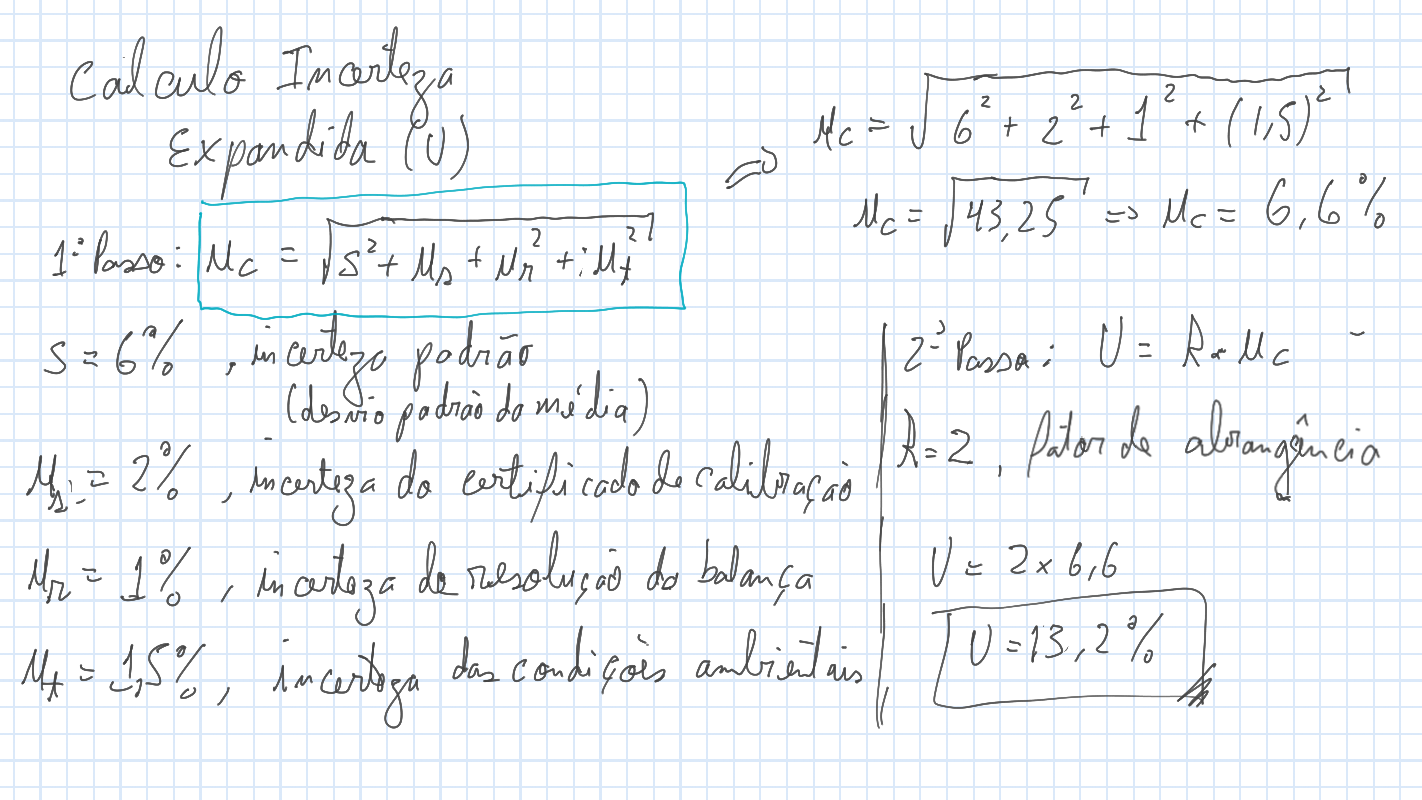 Calculo Incerteza
Expandida (U)
1º Passo: μc = √(s² + μs + μr² + μt²)
s = 6% , incerteza padrão
(desvio padrão da média)
μs = 2% , incerteza do certificado de calibração
μr = 1% , incerteza de resolução da balança
μt = 1,5% , incerteza das condições ambientais
⇒ μc = √(6² + 2² + 1² + (1,5)²)
μc = √43,25 ⇒ μc = 6,6%
2º Passo: U = R * μc
R = 2 , fator de abrangência
U = 2 x 6,6
U = 13,2%